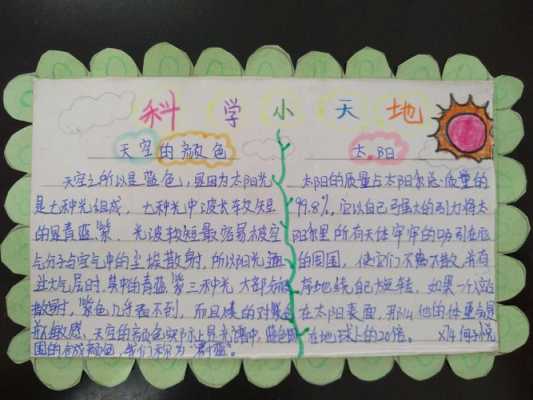 科学小天地
天空的颜色
天空之所以是蓝色，是因为太阳光
是七种光组成，七种光中波长较短
的是青蓝紫，光波较短最容易被空
气分子与空气中的尘埃散射，所以阳光
过大气层时，其中的青、蓝、紫三种光大部分
散射，紫色几乎看不到，而且
敏感，天空的颜色实际上是光谱中，蓝色
围的合成颜色，我们称为"青蓝"。
太阳
太阳的质量占太阳系总质量的
99.8%，它以自己强大的引力将太
阳系里所有天体牢牢的吸引在
的周围，使它们不离不散，井有
在太阳表面，那么他的体重
在地球上的20倍。